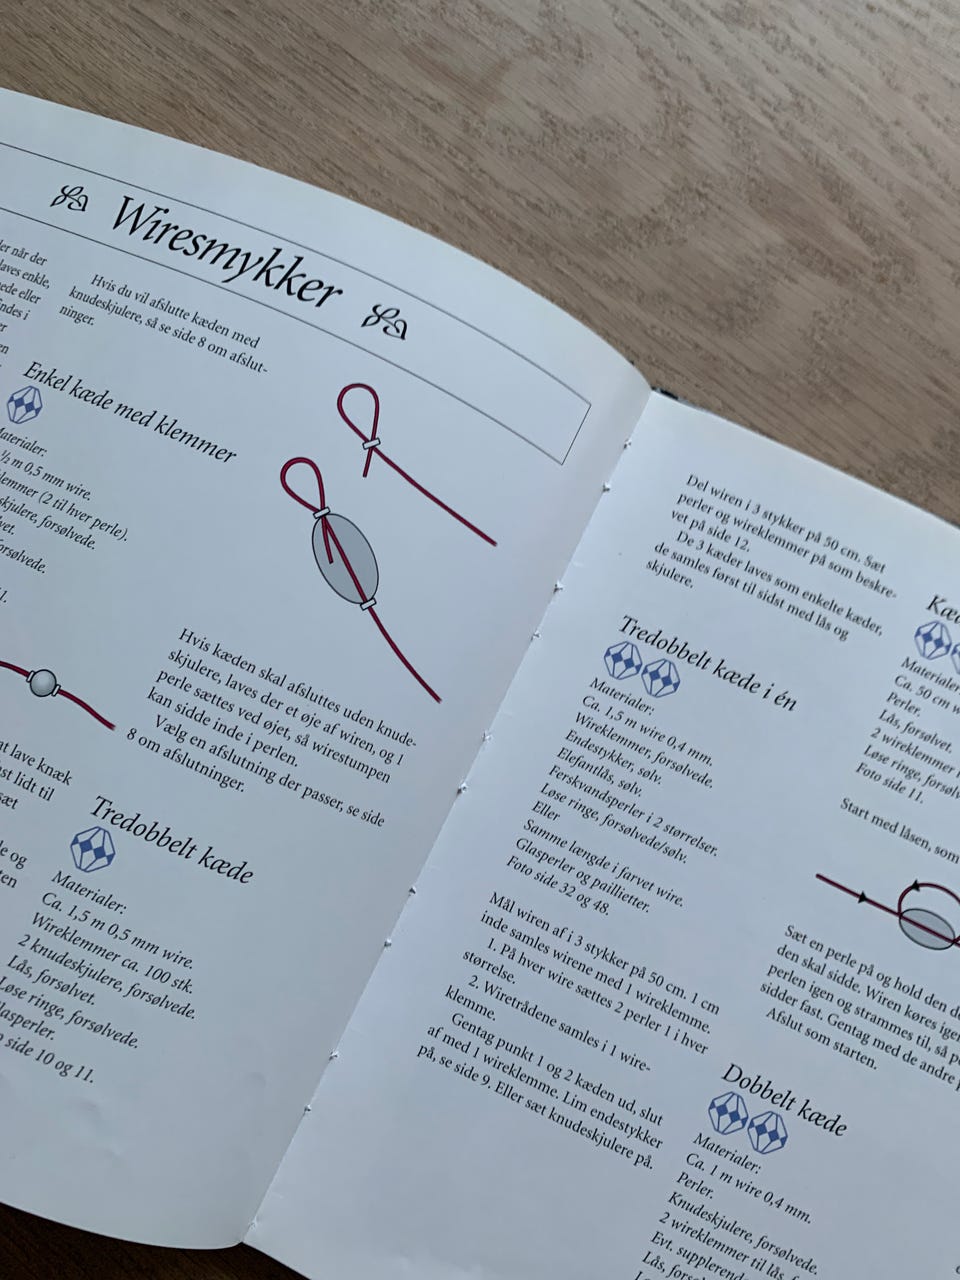 Wiresmykker
når der
laves enkle,
eller
findes i
Hvis du vil afslutte kæden med
knudeskjulere, så se side 8 om afslut-
ninger.
Enkel kæde med klemmer
Materialer:
½ m 0,5 mm wire.
(2 til hver perle).
forsølvede.
forsølvede.
lave knæk
lidt til
og
Hvis kæden skal afsluttes uden knude-
skjulere, laves der et øje af wiren, og 1
perle sættes ved øjet, så wirestumpen
kan sidde inde i perlen.
Vælg en afslutning der passer, se side
8 om afslutninger.
Tredobbelt kæde
Materialer:
Ca. 1,5 m 0,5 mm wire.
Wireklemmer ca. 100 stk.
2 knudeskjulere, forsølvede.
Lås, forsølvet.
Løse ringe, forsølvede.
Glasperler.
side 10 og 11.
Del wiren i 3 stykker på 50 cm. Sæt
perler og wireklemmer på som beskre-
vet på side 12.
De 3 kæder laves som enkelte kæder,
de samles først til sidst med lås og
skjulere.
Tredobbelt kæde i én
Materialer:
Ca. 1,5 m wire 0,4 mm.
Wireklemmer, forsølvede.
Endestykker, sølv.
Elefantlås, sølv.
Ferskvandsperler i 2 størrelser.
Løse ringe, forsølvede/sølv.
Eller
Samme længde i farvet wire.
Glasperler og paillietter.
Foto side 32 og 48.
Mål wiren af i 3 stykker på 50 cm. 1 cm
inde samles wirene med 1 wireklemme.
1. På hver wire sættes 2 perler 1 i hver
størrelse.
2. Wiretrådene samles i 1 wire-
klemme.
Gentag punkt 1 og 2 kæden ud, slut
af med 1 wireklemme. Lim endestykker
på, se side 9. Eller sæt knudeskjulere på.
Materialer:
Ca. 50 cm
Perler.
Lås, forsølvet.
2 wireklemmer
Løse ringe,
Foto side 11.
Start med låsen, som
Sæt en perle på og hold den
den skal sidde. Wiren køres
perlen igen og strammes til, så
sidder fast. Gentag med de andre
Afslut som starten.
Dobbelt kæde
Materialer:
Ca. 1 m wire 0,4 mm.
Perler.
Knudeskjulere, forsølvede.
2 wireklemmer til
Evt.
Lås,